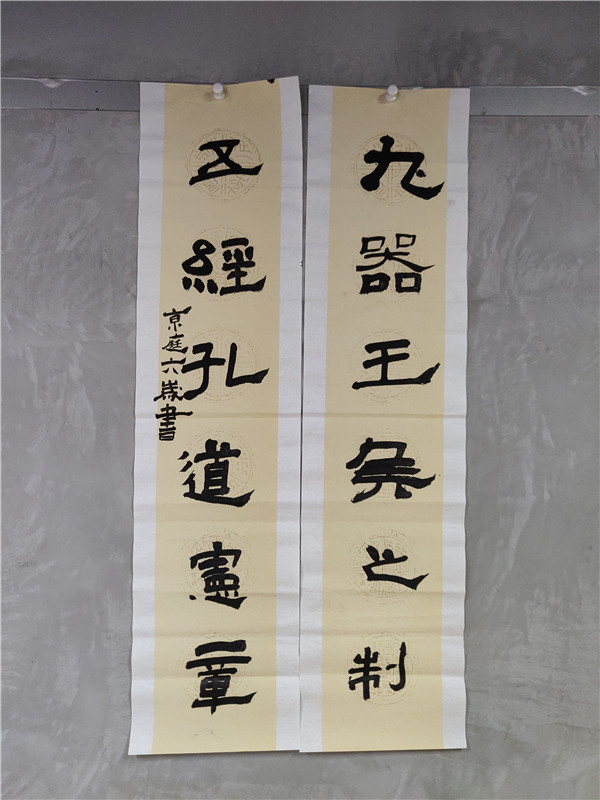 九器王矦之制
五經孔道憲章
京庭六歲書